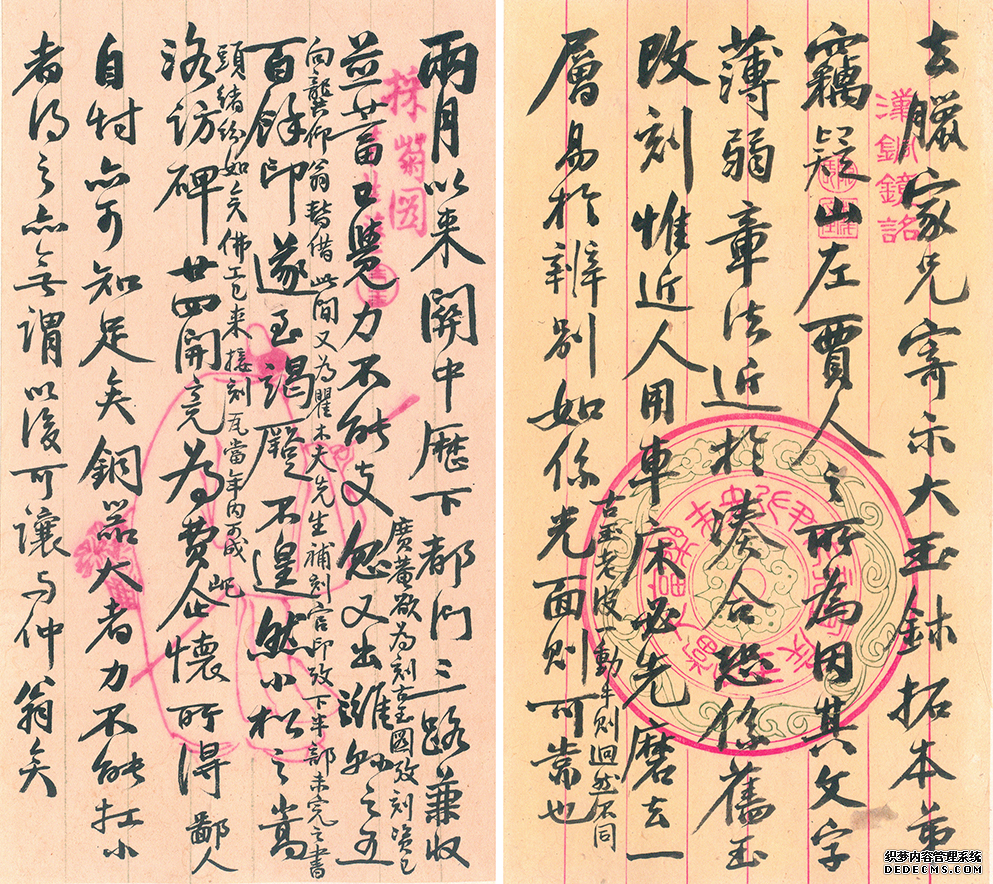 漢銅鏡銘
去臘家兄寄示大玉鉥拓本弟
竊疑山左賈人之所為因其文字
薄弱章法近於湊合恐係舊玉
改刻惟近人用車床必先磨去一
古玉老皮一動手則迥然不同
層易於辨別如係光面則可靠也
採菊圖
兩月以來關中歷下都門三路兼收
廣菴欲為刻古玉圖攷刻資已
並蓄已覺力不能支忽又出濰縣之五
向龔仰翁暫借此間又為瞿木夫先生補刻官印攷下半部未完之書
百餘印遂至竭蹶不遑然小松之嵩
頭緒紛如矣佛工已來接刻瓦當年內可成
洛訪碑廿四開竟為費屺懷所得鄙人
自忖亦可知足矣銅器大者力不能扛小
者得之亦無謂以後可讓與仲翁矣
织梦内容管理系统
DEDECMS.COM